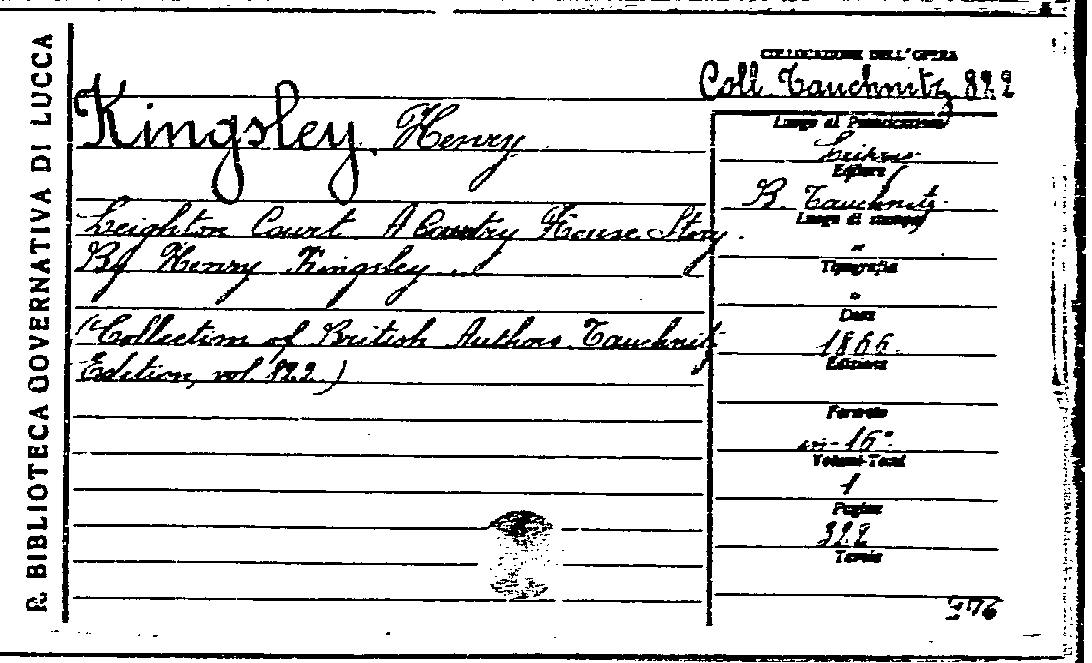 R. BIBLIOTECA GOVERNATIVA DI LUCCA
COLLOCAZIONE DELL'OPERA
Coll. Tauchnitz 822
Kingsley, Henry
Leighton Court A Country House Story.
By Henry Kingsley.
(Collection of British Authors Tauchnitz
Edition, vol. 822)
Luogo di Pubblicazione
Editore
B. Tauchnitz
Luogo di stampa
"
Tipografia
"
Data
1866.
Edizione
Formato
in-16°.
Volumi-Tomi
1
Pagine
322
Tavole